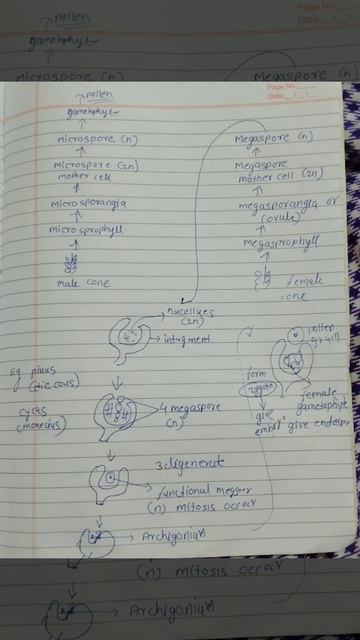 pollen
gametophyte
Page No.
Date
microspore (n)
Megaspore (n)
pollen
gametophyte
Page No.
Date
microspore (n)
microspore (2n)
mother cell
microsporangia
microsprophyll
male cone
Megaspore (n)
Megaspore
mother cell (2n)
megasporangia or
(ovule)
megasprophyll
female
cone
nucellues
(2n)
intugment
Eg pinus
cycus
4 megaspore
(n)
form
zygote
give
embryo
pollen
female
gametophyte
give endosper
3 digenerate
functional megspor
(n) mitosis occur
Archigonium
(n) mitosis occur
Archigonium